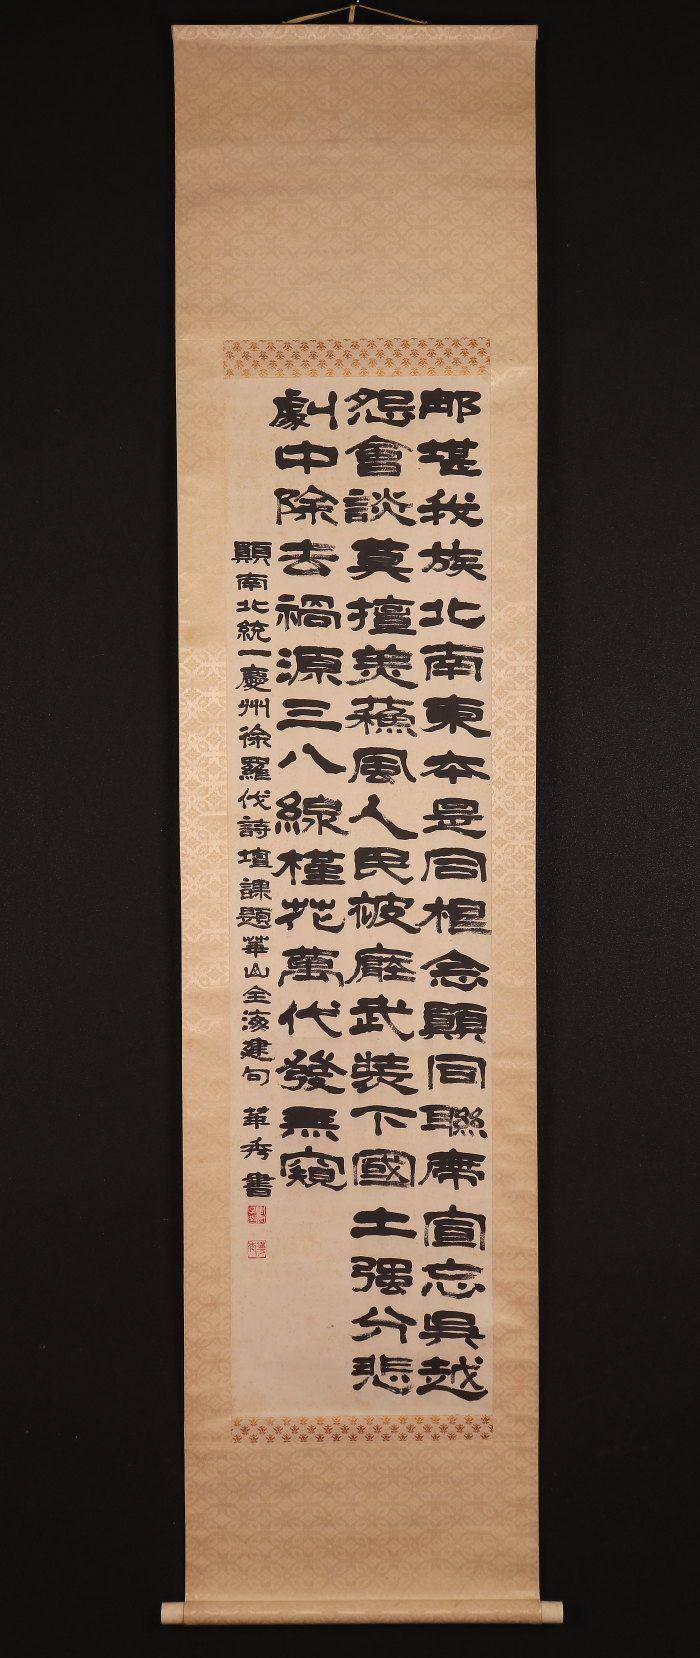 那堪我族北南東本是同根念願同聯席宣忘吳越
怨會談莫擅美蘇風人民被壓武裝下國土强分悲
劇中除去禍源三八線槿花萬代發無窮
願南北統一慶州徐羅伐詩壇課題華山全海建句 華秀書